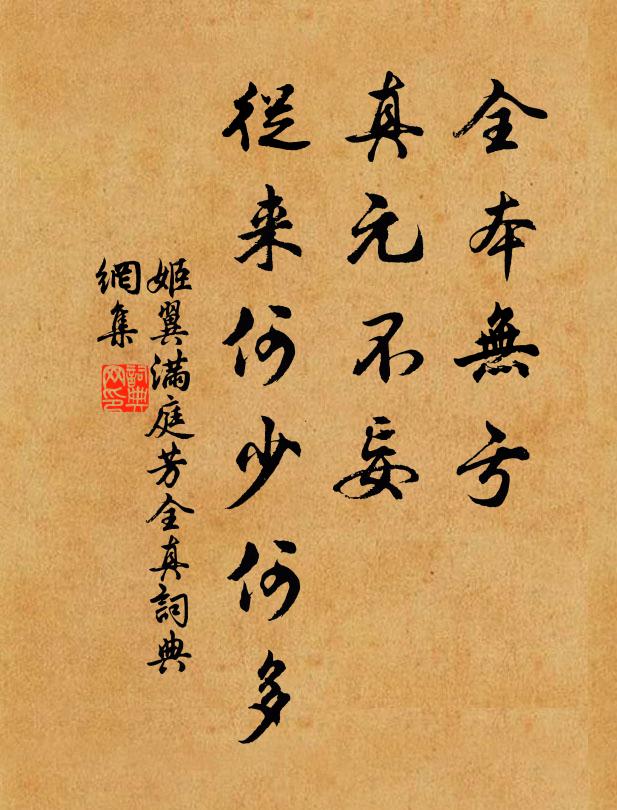 全本無亏
真元不妄
從来何少何多
姬翼滿庭芳全真詞典
網集
詞典网印